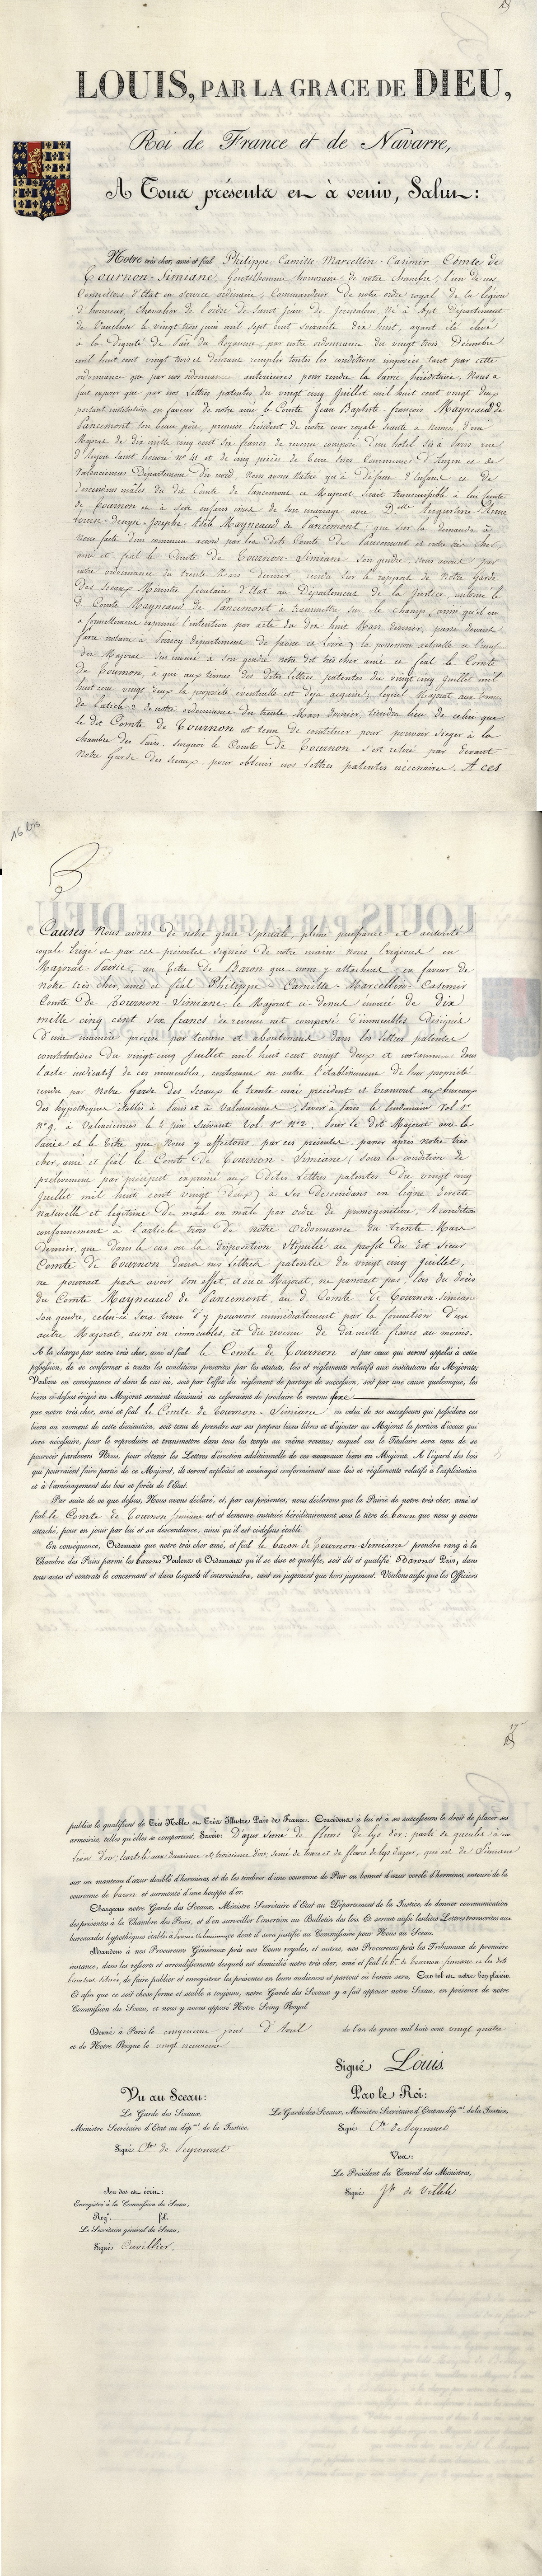 LOUIS, PAR LA GRACE DE DIEU,
Roi de France et de Navarre,
A Tous présents et à venir, Salut:
Notre très cher, amé et féal Philippe-Camille-Marcellin-Casimir Comte de
Tournon-Simiane, Gentilhomme honoraire de notre chambre, l'un de nos
Conseillers d'Etat en service ordinaire, Commandeur de notre ordre royal de la légion
d'honneur, Chevalier de l'ordre de Saint Jean de Jerusalem, né à Apt Département
de Vaucluse le vingt trois juin mil sept cent soixante dix huit, ayant été élevé
à la dignité de Pair du Royaume, par notre ordonnance du vingt trois Décembre
mil huit cent vingt trois et désirant remplir toutes les conditions imposées tant par cette
ordonnance que par nos ordonnances antérieures pour rendre la Pairie héréditaire, Nous a
fait exposer que par nos lettres patentes du vingt cinq Juillet mil huit cent vingt deux
portant institution en faveur de notre amé le Comte Jean Baptiste-François Mayneaud de
Pancemont son beau père, premier président de notre cour royale séante à Nismes, d'un
Majorat de dix mille cinq cent six francs de revenu composé d'un hôtel sis à Paris rue
d'Anjou Saint honoré nº 41 et de cinq pièces de terre sises Communes d'Anzin et de
Valenciennes Département du nord, nous avons statué qu'à défaut d'Enfans et de
descendans mâles du dit Comte de Pancemont ce Majorat serait transmissible à lui Comte
de Tournon et à ses enfans issus de son mariage avec Delle Virginie-
Adèle Mayneaud de Pancemont; que sur la demande à
Nous faite d'un commun accord par les dits Comte de Pancemont et notre très cher
amé et féal le Comte de Tournon-Simiane son gendre, nous avons par
notre ordonnance du trente Mars dernier, rendue sur le rapport de Notre Garde
des Sceaux Ministre Secrétaire d'Etat au Département de la Justice, autorisé le
d. Comte Mayneaud de Pancemont à transmettre sur le Champ, ainsi qu'il en
a formellement exprimé l'intention par acte du dix huit Mars dernier, passé devant
notaire à département de Saône et Loire, la possession actuelle et
du Majorat à son gendre notre dit très cher amé et féal le Comte
de Tournon, à qui aux termes des dites lettres patentes du vingt cinq juillet mil
huit cent vingt deux la propriété éventuelle est déja acquise; lequel Majorat aux termes
de l'article 2 de notre ordonnance du trente Mars dernier, tiendra lieu de celui que
le dit Comte de Tournon est tenu de constituer pour pouvoir sieger à la
chambre des Pairs. Surquoi le Comte de Tournon s'est retiré par devant
Notre Garde des Sceaux, pour obtenir nos Lettres patentes nécessaires. A ces
16 bis
Causes Nous avons de notre grace speciale, pleine puissance et autorité
royale érigé et par ces présentes signées de notre main nous érigeons en
Majorat-Pairie, au titre de Baron que nous y attachons en faveur de
notre très cher, amé et féal Philippe-Camille-Marcellin-Casimir
Comte de Tournon-Simiane, le Majorat ci-dessus énoncé de dix
mille cinq cent six francs de revenu net composé d'immeubles désignés
d'une manière précise par tenans et aboutissans dans les lettres patentes
constitutives du vingt cinq Juillet mil huit cent vingt deux et notamment dans
l'acte indicatif de ces immeubles, contenant en outre l'établissement de leur propriété
rendu par Notre Garde des Sceaux le trente mai précédent et transcrit aux bureaux
des hypothèques établis à Paris et à Valenciennes; savoir à Paris le lendemain Vol. 1er
nº 9, à Valenciennes le 4 juin suivant Vol. 1er nº 2. Pour le dit Majorat avec la
Pairie et le titre que Nous y affectons, par ces présentes, passer après notre très
cher, amé et féal le Comte de Tournon-Simiane (sous la condition de
prélèvement par préciput exprimé aux dites lettres patentes du vingt cinq
Juillet mil huit cent vingt deux) à ses descendans en ligne directe
naturelle et légitime de mâle en mâle par ordre de primogéniture, à condition
conformément à l'article trois de notre Ordonnance du trente Mars
dernier, que dans le cas ou la disposition stipulée au profit du dit Sieur
Comte de Tournon dans nos lettres patentes du vingt cinq Juillet,
ne pourrait pas avoir son effet, et ou ce Majorat, ne passerait pas, lors du décès
du Comte Mayneaud de Pancemont, au d. Comte de Tournon-Simiane
son gendre, celui-ci sera tenu d'y pourvoir immédiatement par la formation d'un
autre Majorat, aussi en immeubles, et du revenu de dix mille francs au moins.
A la charge par notre très cher, amé et féal le Comte de Tournon et par ceux qui seront appelés à cette
possession, de se conformer à toutes les conditions prescrites par les statuts, lois et réglements relatifs aux institutions des Majorats;
Voulons en conséquence et dans le cas où, soit par l'effet du réglement de partage de succession, soit par une cause quelconque, les
biens ci-dessus érigés en Majorat seraient diminués ou cesseraient de produire le revenu fixé
que notre très cher, amé et féal le Comte de Tournon-Simiane ou celui de ses successeurs qui possédera ces
biens au moment de cette diminution, soit tenu de prendre sur ses propres biens libres et d'ajouter au Majorat la portion d'iceux qui
sera nécessaire, pour le reproduire et transmettre dans tous les temps au même revenu; auquel cas le Titulaire sera tenu de se
pourvoir pardevers Nous, pour obtenir les Lettres d'érection additionnelle de ces nouveaux biens en Majorat. A l'égard des bois
qui pourraient faire partie de ce Majorat, ils seront exploités et aménagés conformément aux lois et réglements relatifs à l'exploitation
et à l'aménagement des bois et forêts de l'Etat.
Par suite de ce que dessus, Nous avons déclaré, et, par ces présentes, nous déclarons que la Pairie de notre très cher, amé et
féal le Comte de Tournon Simiane est et demeure instituée héréditairement sous le titre de baron que nous y avons
attaché, pour en jouir par lui et sa descendance, ainsi qu'il est ci-dessus établi.
En conséquence, Ordonnons que notre très cher amé, et féal le baron de Tournon-Simiane prendra rang à la
Chambre des Pairs parmi les barons Voulons et Ordonnons qu'il se dise et qualifie, soit dit et qualifié Baron et Pair, dans
tous actes et contrats le concernant et dans lesquels il interviendra, tant en jugement que hors jugement. Voulons aussi que les Officiers
17
publics le qualifient de Très Noble et Très Illustre Pair de France. Concédons à lui et à ses successeurs le droit de placer ses
armoiries, telles qu'elles se comportent, Savoir: D'azur semé de fleurs de lys d'or; parti de gueules à un
lion d'or; écartelé aux deuxième et troisième d'or, semé de tours et de fleurs de lys d'azur, qui est de Simiane
sur un manteau d'azur doublé d'hermines, et de les timbrer d'une couronne de Pair ou bonnet d'azur cerclé d'hermines, entouré de la
couronne de baron et surmonté d'une houppe d'or.
Chargeons notre Garde des Sceaux, Ministre Secrétaire d'Etat au Département de la Justice, de donner communication
des présentes à la Chambre des Pairs, et d'en surveiller l'insertion au Bulletin des lois. Et seront aussi lesdites Lettres transcrites aux
bureaux des hypothèques établis à Paris et Valenciennes dont il sera justifié au Commissaire pour Nous au Sceau.
Mandons à nos Procureurs Généraux près nos Cours royales, et autres, nos Procureurs près les Tribunaux de première
instance, dans les ressorts et arrondissements desquels est domicilié notre très cher, amé et féal le Bon de Tournon-Simiane et les dits
biens sont situés, de faire publier et enregistrer les présentes en leurs audiences et partout où besoin sera. Car tel est notre bon plaisir.
Et afin que ce soit chose ferme et stable à toujours, notre Garde des Sceaux y a fait apposer notre Sceau, en présence de notre
Commission du Sceau, et nous y avons apposé Notre Seing Royal.
Donné à Paris le cinquième jour d'Avril de l'an de grace mil huit cent vingt quatre
et de Notre Règne le vingt neuvième
Signé Louis
Vu au Sceau:
Le Garde des Sceaux,
Ministre Secrétaire d'Etat au dépmt de la Justice,
Signé Cte de Peyronnet
Par le Roi:
Le Garde des Sceaux, Ministre Secrétaire d'Etat au dépmt de la Justice,
Signé Cte de Peyronnet
Vu:
Le Président du Conseil des Ministres,
Signé Jh de Villèle
Au dos est écrit:
Enregistré à la Commission du Sceau,
Regre fol.
Le Secrétaire général du Sceau,
Signé Cuvillier.